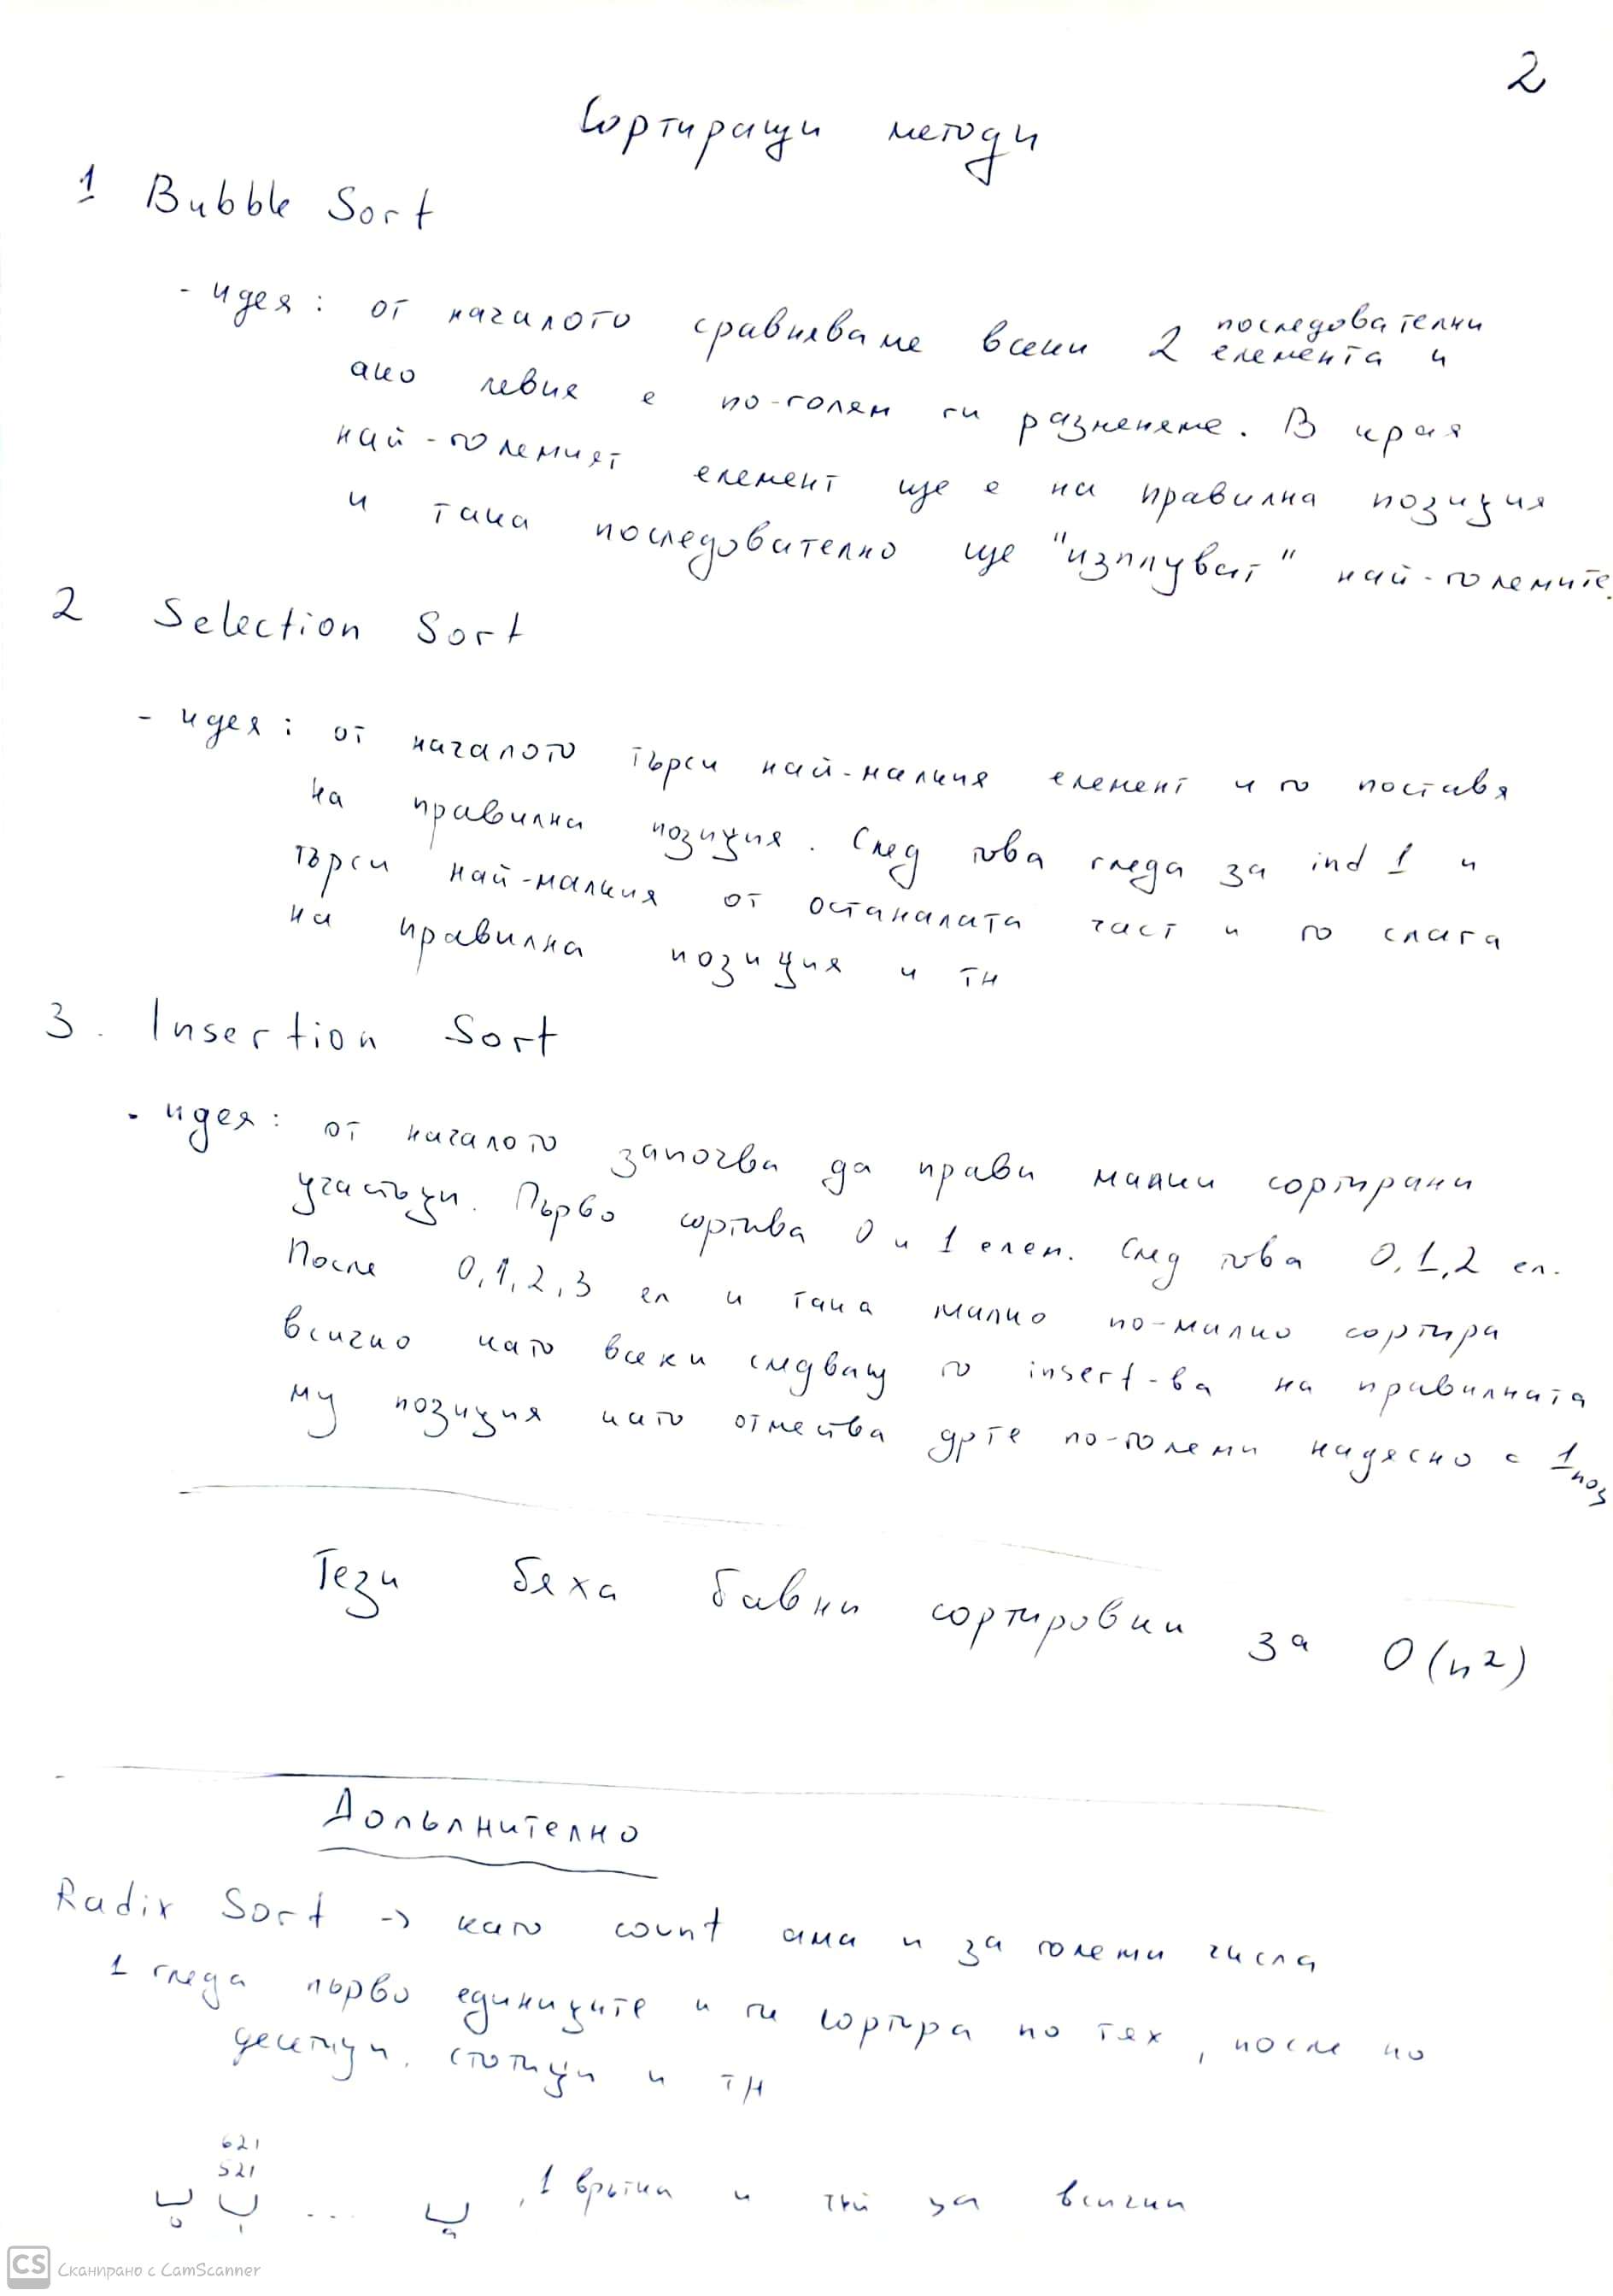 2
Сортиращи методи
1 Bubble Sort
- идея: от началото сравняваме всеки 2 последователни елемента и
ако левия е по-голям ги разменяме. В края
най-големият елемент ще е на правилна позиция
и така последователно ще "изплуват" най-големите.
2 Selection Sort
- идея: от началото търси най-малкия елемент и го поставя
на правилна позиция. След това гледа за ind 1 и
търси най-малкия от останалата част и го слага
на правилна позиция и тн
3. Insertion Sort
- идея: от началото започва да прави малки сортирани
участъци. Първо сортива 0 и 1 елем. След това 0,1,2 ел.
После 0,1,2,3 ел и така малко по-малко сортира
всичко като всеки следващ го insert-ва на правилната
му позиция като отмества дрте по-големи надясно с 1 поз
Тези бяха бавни сортировки за O(n2)
Допълнително
Radix Sort -> като count ама и за големи числа
1 гледа първо единиците и ги сортира по тях, после по
десетици, стотици и тн
621
521
0 1 ... 9 , 1 врътка и тн за всички
CS Сканирано с CamScanner